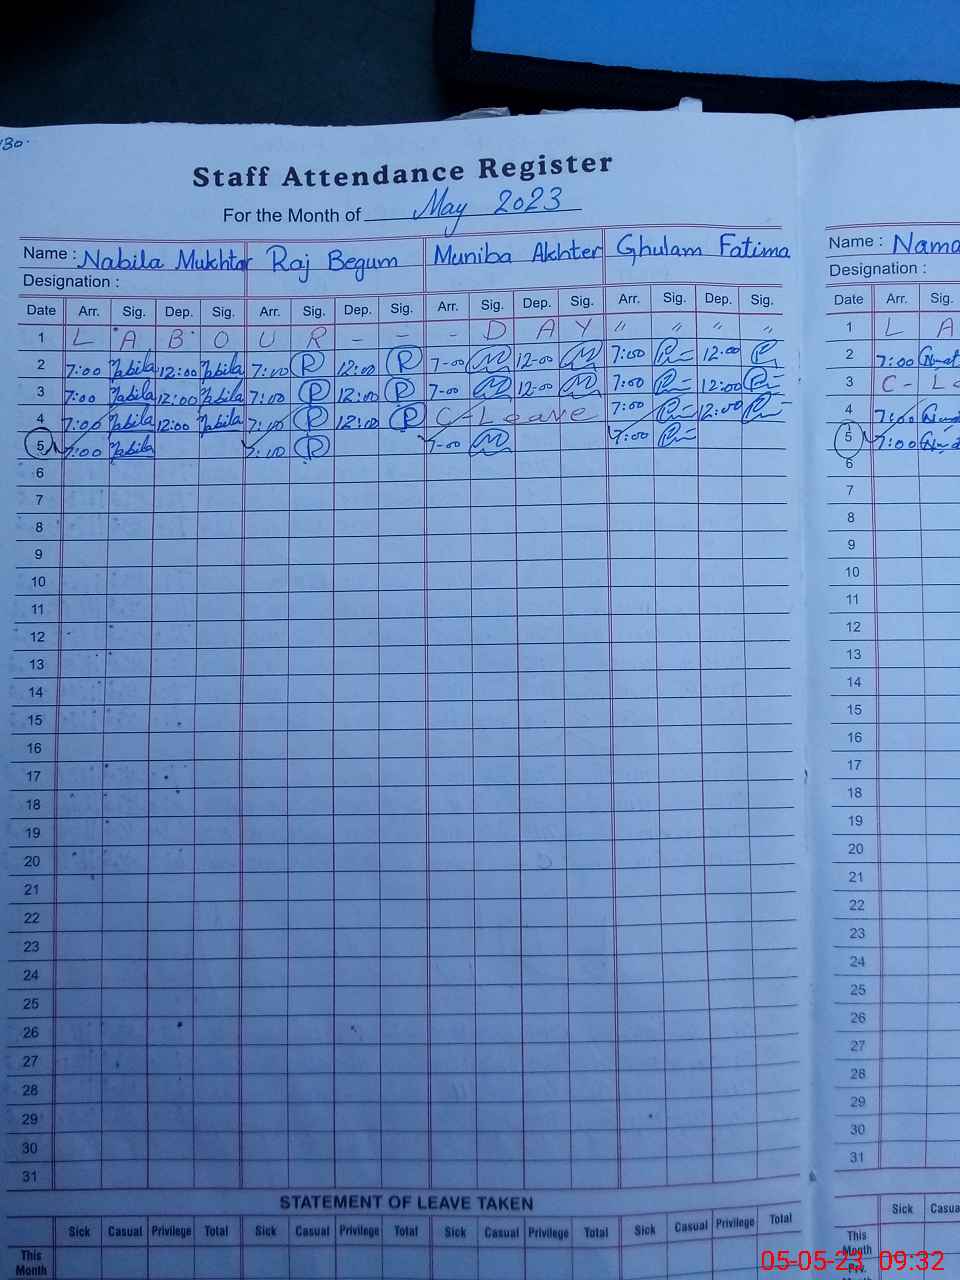 Staff Attendance Register
For the Month of May 2023
Name : Nabila Mukhtar Raj Begum Muniba Akhter Ghulam Fatima
Designation :
Date Arr. Sig. Dep. Sig. Arr. Sig. Dep. Sig. Arr. Sig. Dep. Sig. Arr. Sig. Dep. Sig.
1 L A B O U R - - - D A Y " " " "
2 7:00 Nabila 12:00 Nabila 7:00 R 12:00 R 7-00 12-00 7:00 12:00
3 7:00 Nabila 12:00 Nabila 7:00 R 12:00 R 7-00 12-00 7:00 12:00
4 7:00 Nabila 12:00 Nabila 7:00 R 12:00 R C-Leave 7:00 12:00
5 7:00 Nabila 7:00 R 7-00 7:00
6
7
8
9
10
11
12
13
14
15
16
17
18
19
20
21
22
23
24
25
26
27
28
29
30
31
STATEMENT OF LEAVE TAKEN
Sick Casual Privilege Total Sick Casual Privilege Total Sick Casual Privilege Total Sick Casual Privilege Total
This
Month
Name :
Designation :
Date Arr. Sig.
1 L A
2 7:00
3 C-
4 7:00
5 7:00
6
7
8
9
10
11
12
13
14
15
16
17
18
19
20
21
22
23
24
25
26
27
28
29
30
31
Sick
This
Month
Prv.
05-05-23 09:32